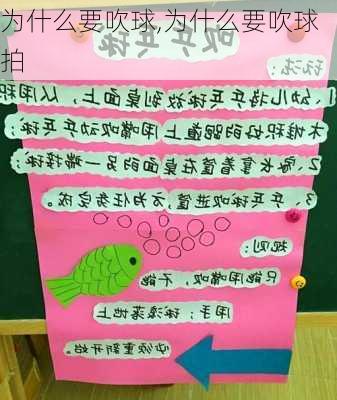 为什么要吹球,为什么要吹球拍
吹乒乓球
玩法:
1、幼儿将乒乓球放到桌面上,人用积
木堆积好的跑道上用嘴吹动乒乓球;
2、家长拿着筐在桌面的另一端接球;
3、乒乓球吹进筐,方为任务完成。
规则:
只能用嘴吹,不能
用手;球滚落地上
必须重新开始。